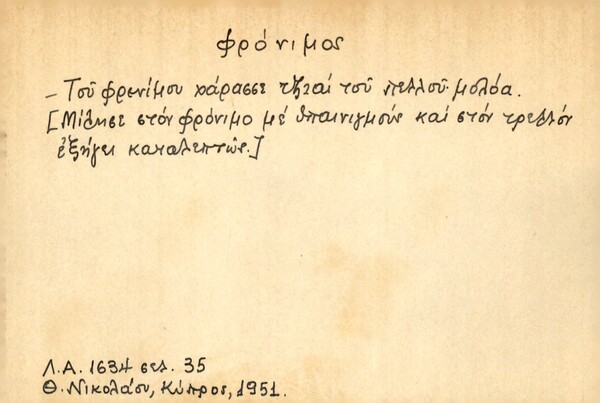 φρόνιμος
– Τοῦ φρενίμου χάρασσε τζ̌αί τοῦ πελλοῦ μολόα.
[Μίλησε στόν φρόνιμο μέ ὑπαινιγμούς καί στόν τρελλόν
ἐξήγει καταλεπτῶς.]
Λ.Α. 1634 σελ. 35
Θ. Νικολάου, Κύπρος, 1951.